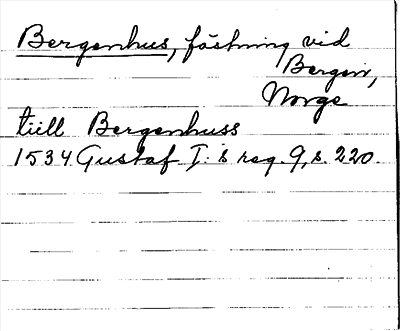 Bergenhus, fästning vid
Bergen,
Norge
tiill Bergenhuss
1534 Gustaf I:s reg. 9, s. 220.